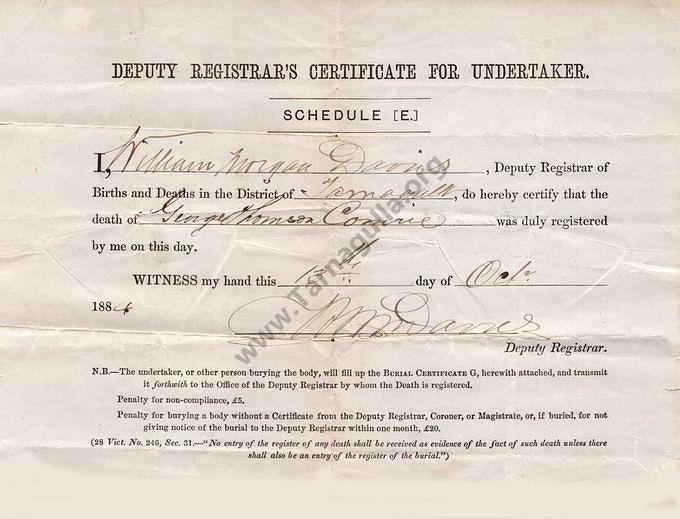 DEPUTY REGISTRAR'S CERTIFICATE FOR UNDERTAKER.
SCHEDULE [E.]
I, William Morgan Davies, Deputy Registrar of
Births and Deaths in the District of Tarnagulla, do hereby certify that the
death of George Thomson Cowie was duly registered
by me on this day.
WITNESS my hand this 13th day of Octr
188
Davies
Deputy Registrar.
N.B.—The undertaker, or other person burying the body, will fill up the BURIAL CERTIFICATE G, herewith attached, and transmit
it forthwith to the Office of the Deputy Registrar by whom the Death is registered.
Penalty for non-compliance, £5.
Penalty for burying a body without a Certificate from the Deputy Registrar, Coroner, or Magistrate, or, if buried, for not
giving notice of the burial to the Deputy Registrar within one month, £20.
(28 Vict. No. 246, Sec. 31.—"No entry of the register of any death shall be received as evidence of the fact of such death unless there
shall also be an entry of the register of the burial.")
www.Tarnagulla.org